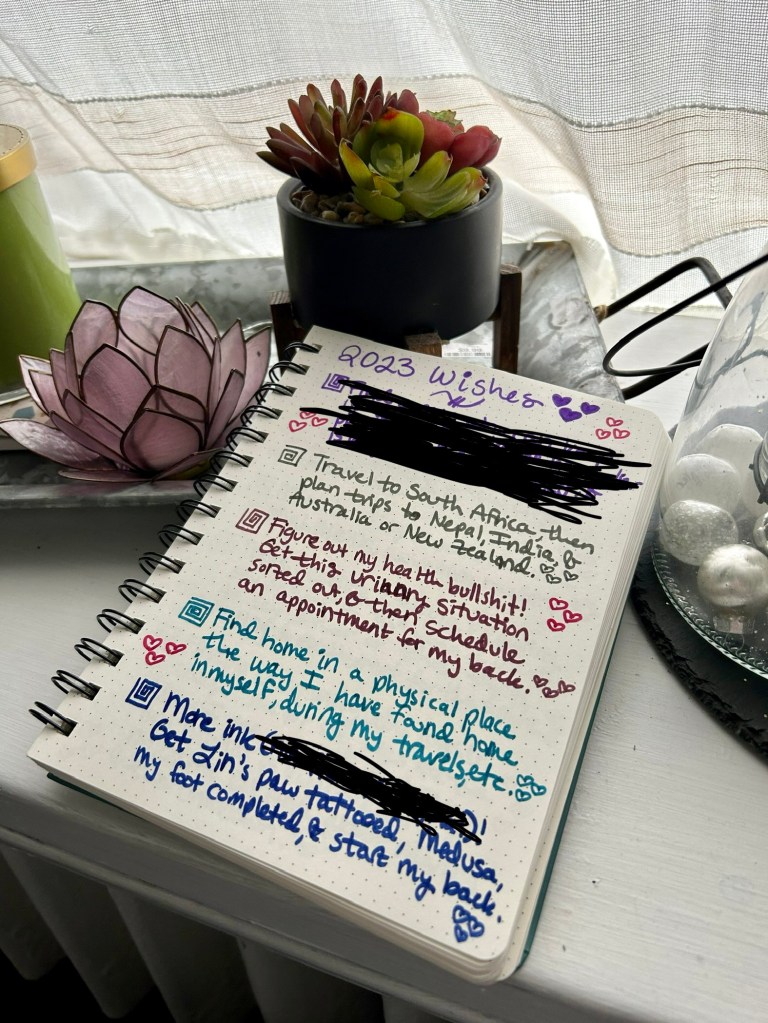 2023 Wishes
Travel to South Africa, then
plan trips to Nepal, India, &
Australia or New Zealand.
Figure out my health bullshit!
Get this urinary situation
sorted out, & then schedule
an appointment for my back.
Find home in a physical place
the way I have found home
in myself, during my travels, etc.
More ink
Get Lin's paw tattooed, Medusa,
my foot completed, & start my back.